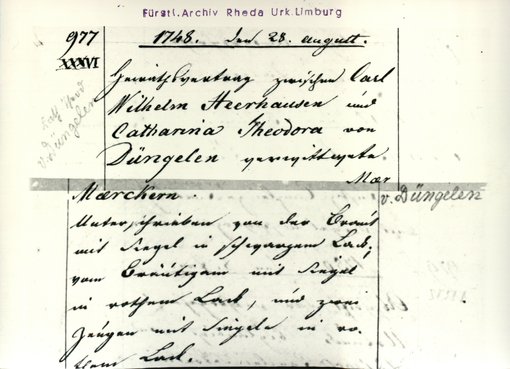 Fürstl. Archiv Rheda Urk. Limburg
977
XXXVI
1748. den 28. august.
Heirathsvertrag zwischen Carl
Wilhelm Heerhausen und
Catharina Theodora von
Düngelen verwittwete
Mær
Mærckern
v. Düngelen
Unterschrieben von der Braut
mit Siegel in schwarzem Lack;
vom Bräutigam mit Siegel
in rothem Lack, und zwei
Zeugen mit Siegeln in ro-
them Lack.